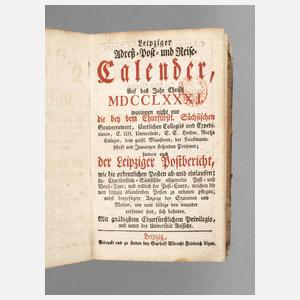 Leipziger
Adreß-Post- und Reise-
Calender,
Auf das Jahr Christi
MDCCLXXXI.
worinnen nicht nur
die bey dem Churfürstl. Sächsischen
Gouvernement, sämtlichen Collegiis und Expedi-
tionen, E. löbl. Universität, E. E. Hochw. Raths
Collegio, dem geistl. Ministerio, der Kaufmann-
schaft und Innungen stehenden Personen;
sondern auch
der Leipziger Postbericht,
wie die ordentlichen Posten ab- und einlaufen;
die Churfürstlich-Sächsische allgemeine Post- und
Brief-Taxe; und endlich der Post-Cours, welchen die
von Leipzig ablaufenden Posten zu nehmen pflegen;
nebst beygefügter Anzeige der Stationen und
Meilen, wie weit selbige von einander
entfernet sind, sich befinden.
Mit gnädigstem Churfürstlichem Privilegio,
und unter der Universität Aufsicht.
Leipzig,
Gedruckt und zu finden bey Albrecht Friedrich